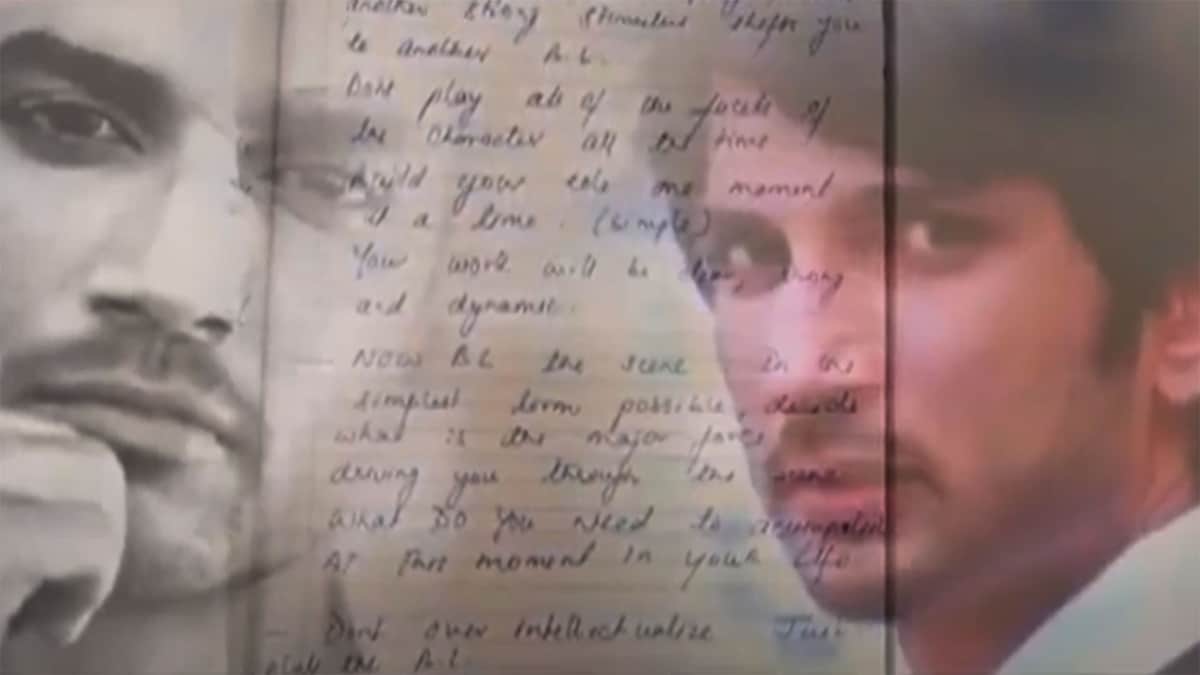 another strong stimulus shifts you
to another A.L.
Dont play all of the facets of
the character all the time
Build your role one moment
at a time. (simple)
Your work will be clear, strong
and dynamic.
— Now BL the scene in the
simplest term possible, decide
what is the major force
driving you through the scene
What DO YOU Need to accomplish
AT This moment in your life
— Dont over intellectualize Just
play the A.L.